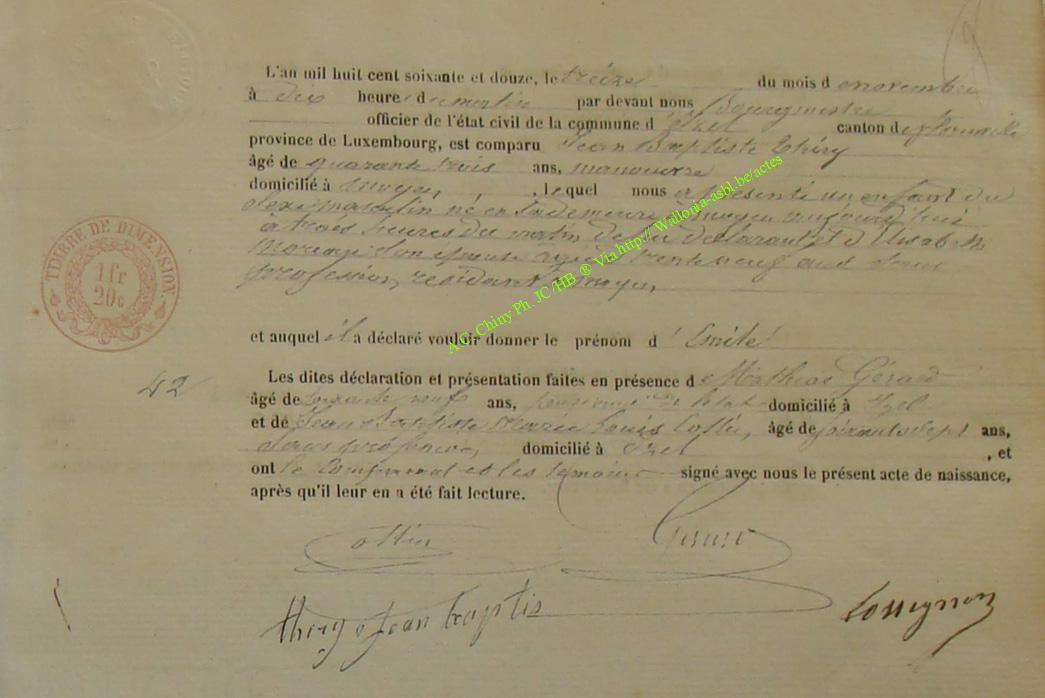 L'an mil huit cent soixante et douze, le treize du mois d e novembre
à dix heure d u matin par devant nous Bourgmestre
officier de l'état civil de la commune d' Izel canton de florenville
province de Luxembourg, est comparu Jean Baptiste Thiry
âgé de quarante trois ans, manoeuvre
domicilié à moyen, , lequel nous a présenté un enfant du
sexe masculin né en sa demeure à moyen aujourd'hui
à trois heures du matin de lui déclarant et d'Elisabeth
son épouse agée trente neuf ans sans
profession, résidant à moyen,
TIMBRE DE DIMENSION.
1 fr
20c
et auquel il a déclaré vouloir donner le prénom d' Emile
42
Les dites déclaration et présentation faites en présence d e Mathias Gérard
âgé de soixante neuf ans, pensionné de l'état domicilié à Izel
et de Jean Baptiste Marie Louis âgé de soixante sept ans,
sans profession, domicilié à Izel , et
ont le comparant et les témoins signé avec nous le présent acte de naissance,
après qu'il leur en a été fait lecture.
Gerard
thiry Jean baptis
Lossignon
A.C. Chiny Ph. JC /HB ® Via http://Wallonia-asbl.be/actes